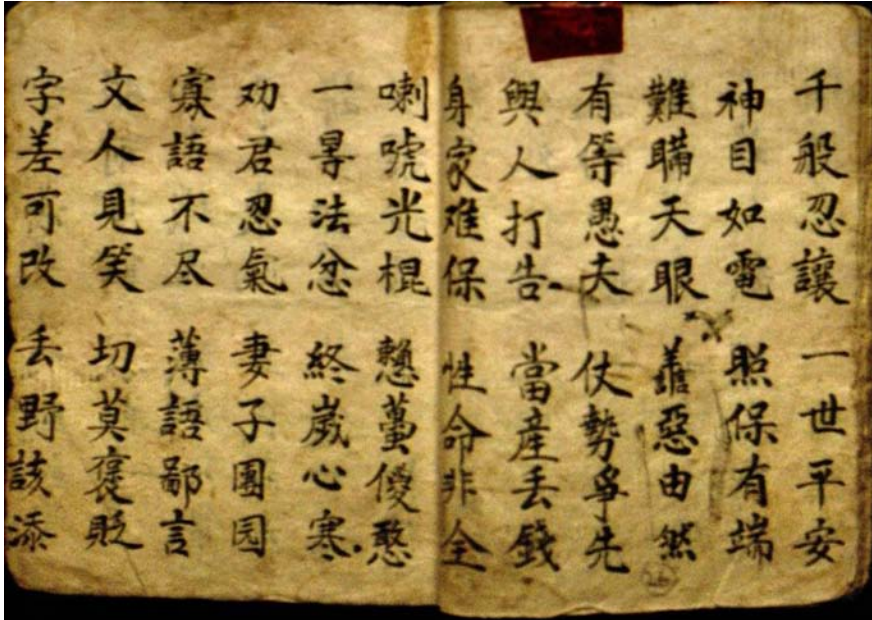 千般忍讓 一世平安
神目如電 照保有端
難瞞天眼 善惡由然
有等愚夫 仗勢爭先
興人打告 當產丟錢
身家难保 性命非全
喇唬光棍 憨優憨
一㝵法忿 終歲心寒
劝君忍氣 妻子團园
寡語不尽 薄語鄙言
文人見笑 切莫褒貶
字差可改 丢野該添